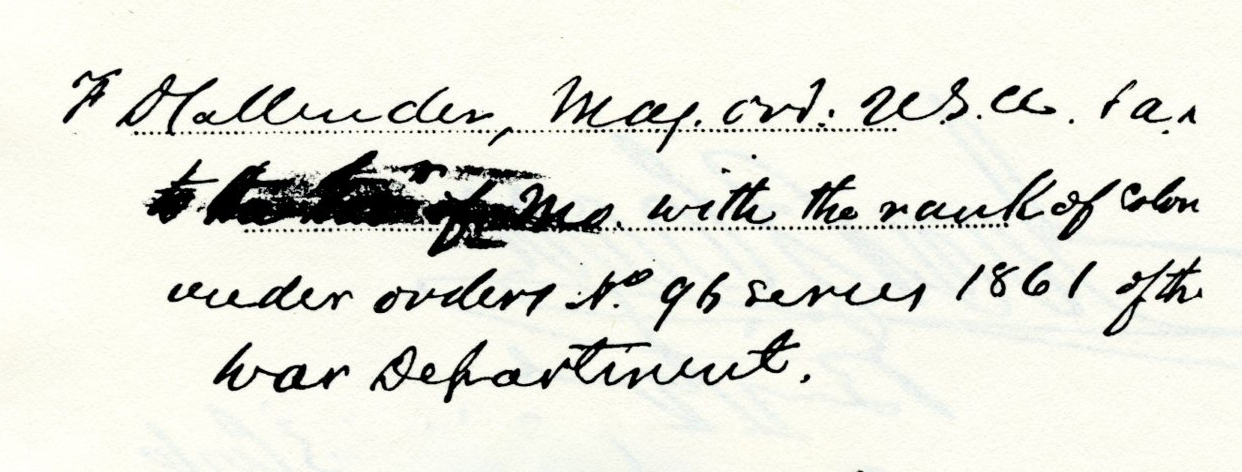 F D Callender, Maj. ord. U.S.A.
of Mo. with the rank of Colon
under orders No. 96 series 1861 of the
War Department.